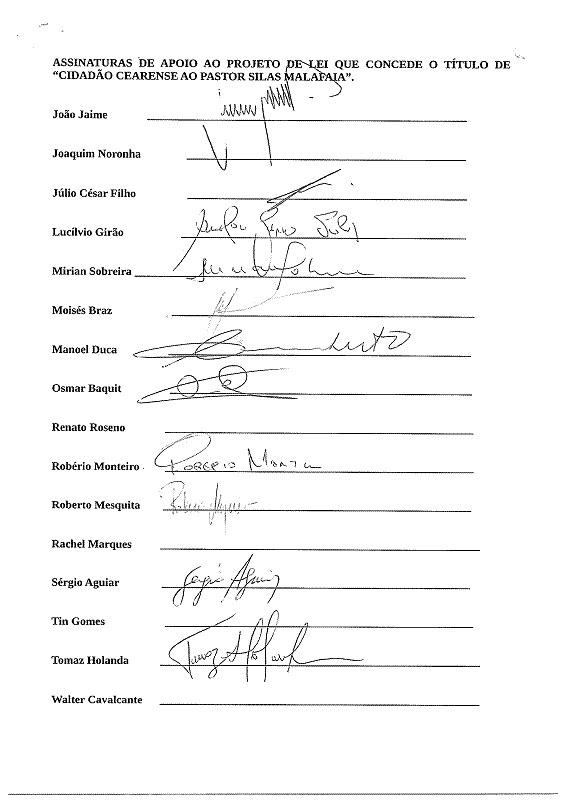 ASSINATURAS DE APOIO AO PROJETO DE LEI QUE CONCEDE O TÍTULO DE
“CIDADÃO CEARENSE AO PASTOR SILAS MALAFAIA”.
João Jaime
Joaquim Noronha
Júlio César Filho
Lucílvio Girão
Mirian Sobreira
Moisés Braz
Manoel Duca
Osmar Baquit
Renato Roseno
Robério Monteiro Roberio Monte
Roberto Mesquita
Rachel Marques
Sérgio Aguiar Sergio Aguiar
Tin Gomes
Tomaz Holanda Tomaz Holanda
Walter Cavalcante